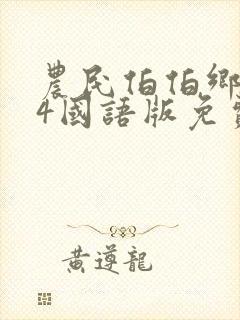 農民伯伯鄉
4國語版免費
黃遵龍